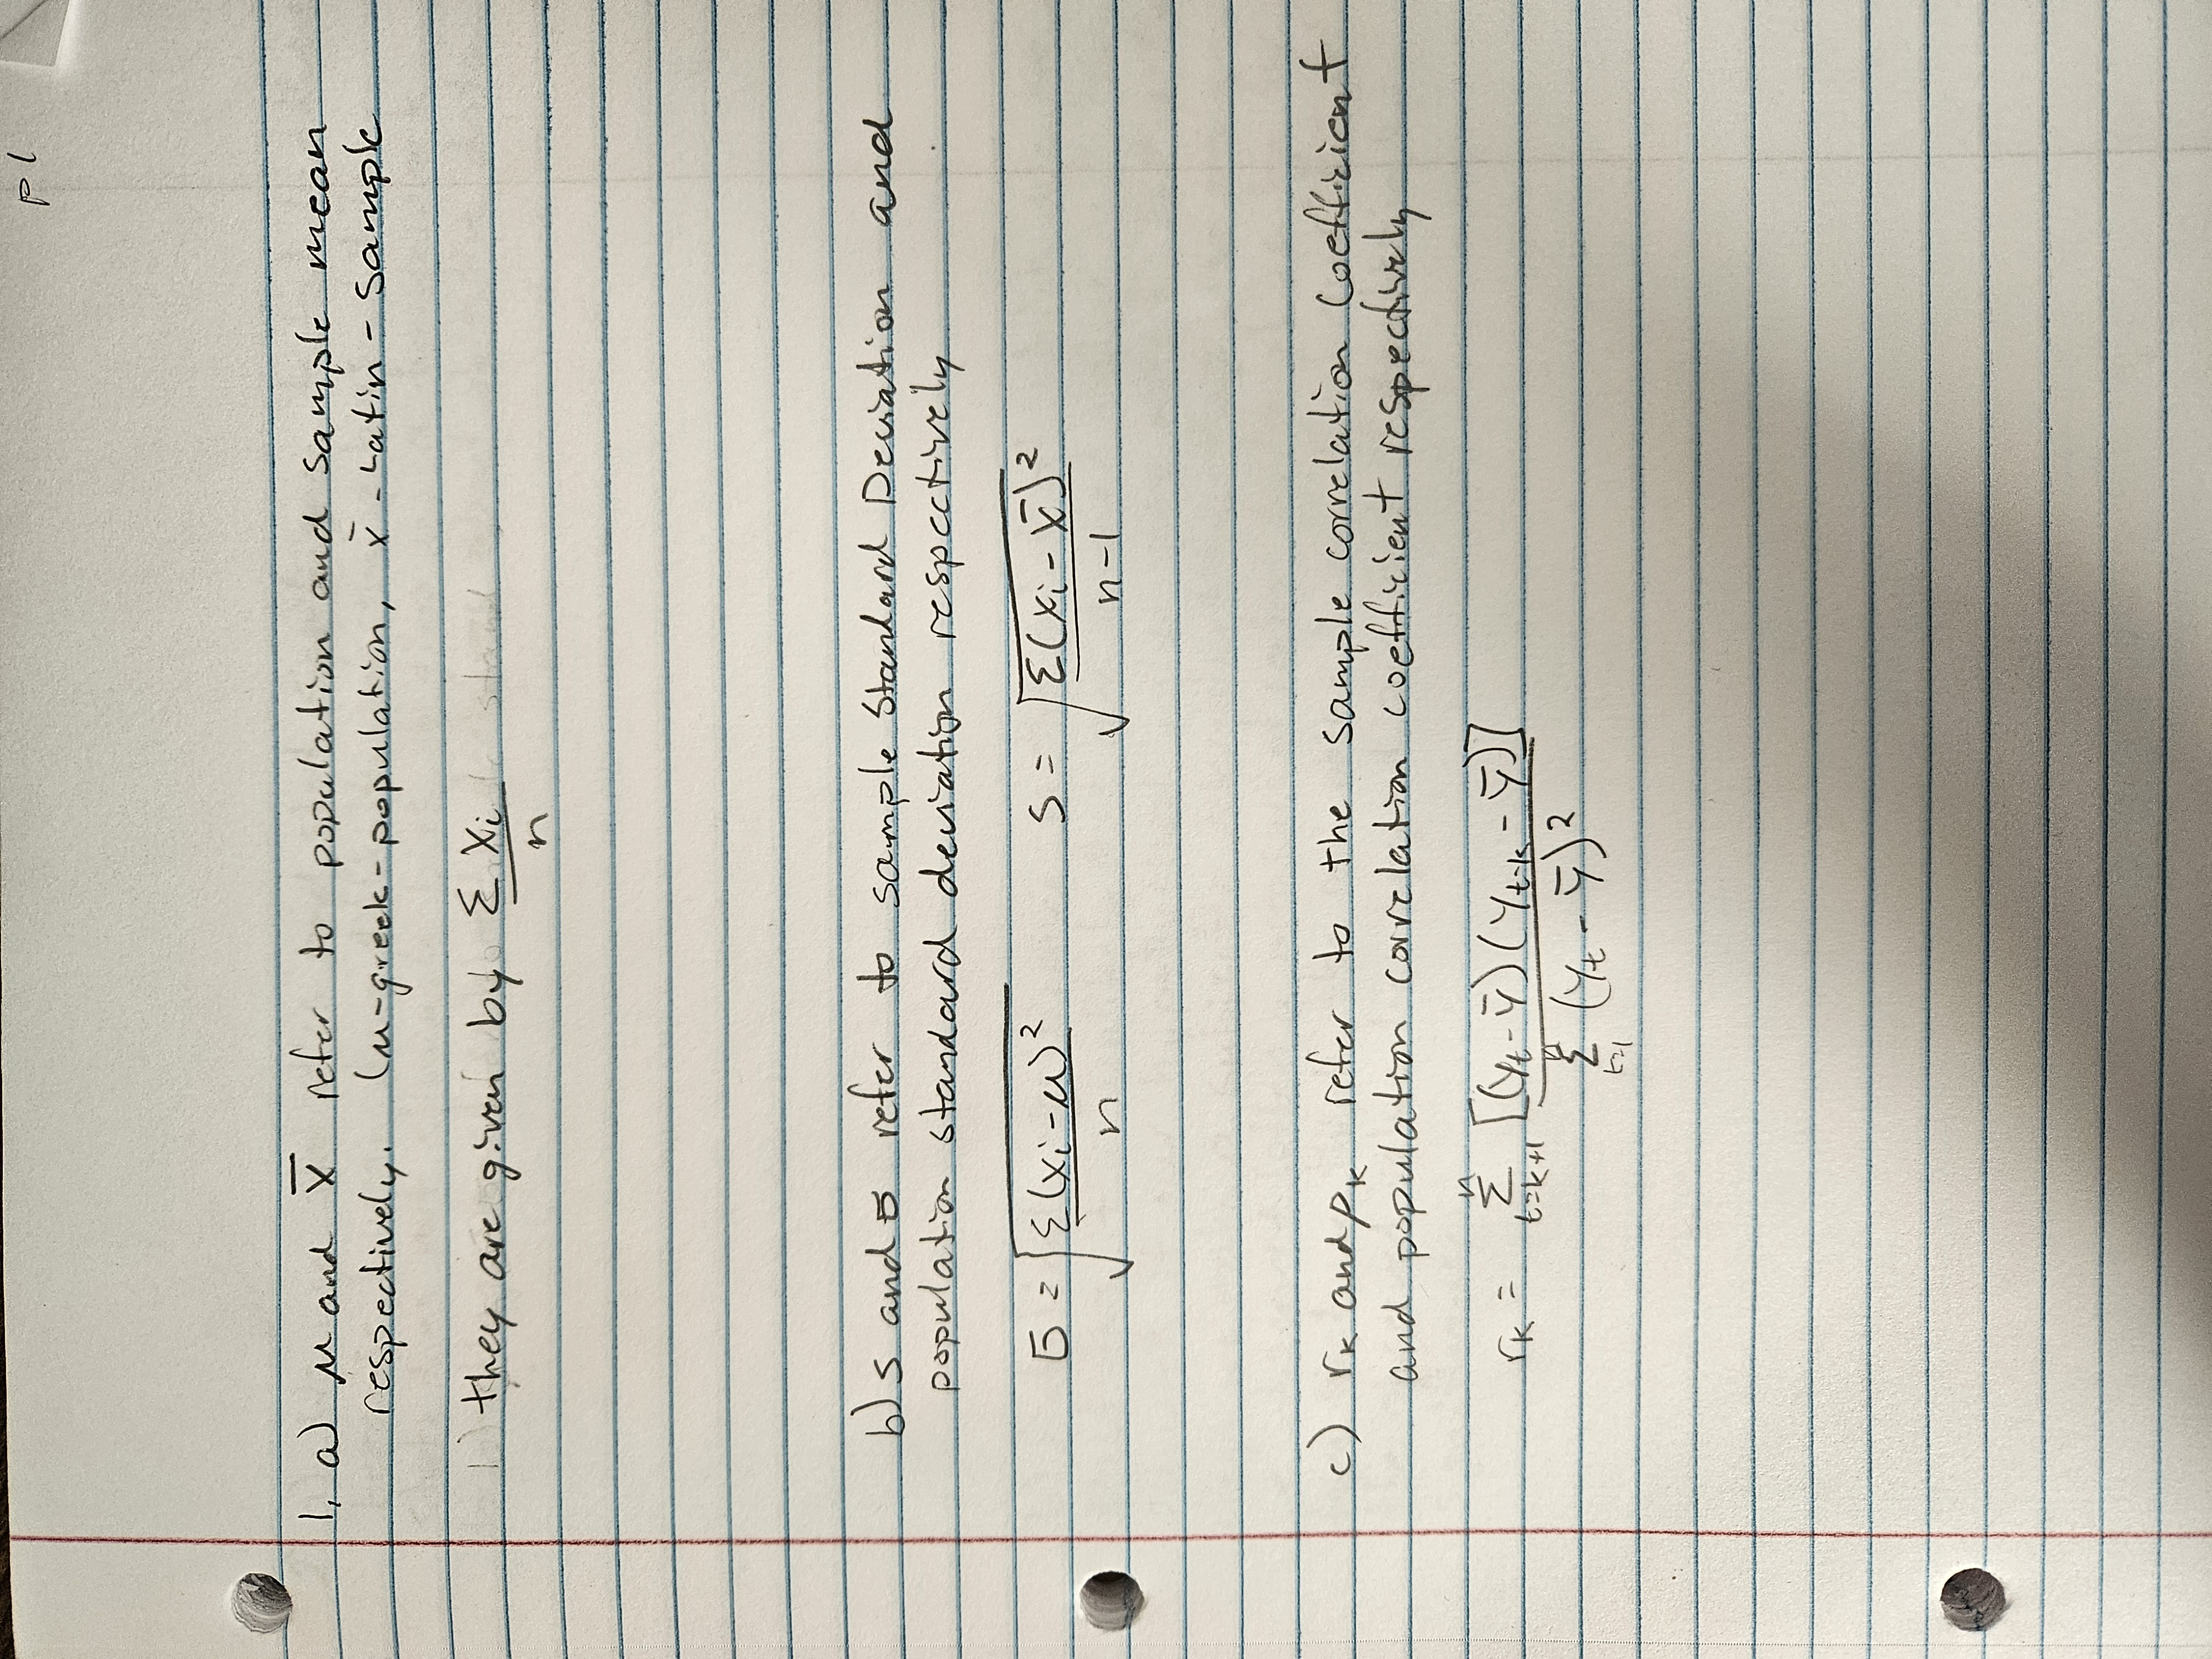 p1
1. a) μ and x̄ refer to population and sample mean
respectively. (μ-greek-population, x̄ - Latin - Sample
they are given by Σ Xi / n
b) s and σ refer to sample Standard Deviation and
population standard deviation respectively
σ = √(Σ(xi-μ)² / n) s = √(Σ(xi - x̄)² / n-1)
c) rk and ρk refer to the sample correlation coefficient
and population correlation coefficient respectively
rk = Σ_{t=k+1}^{n} [(yt - ȳ)(yt-k - ȳ)] / Σ_{t=1}^{n} (yt - ȳ)²